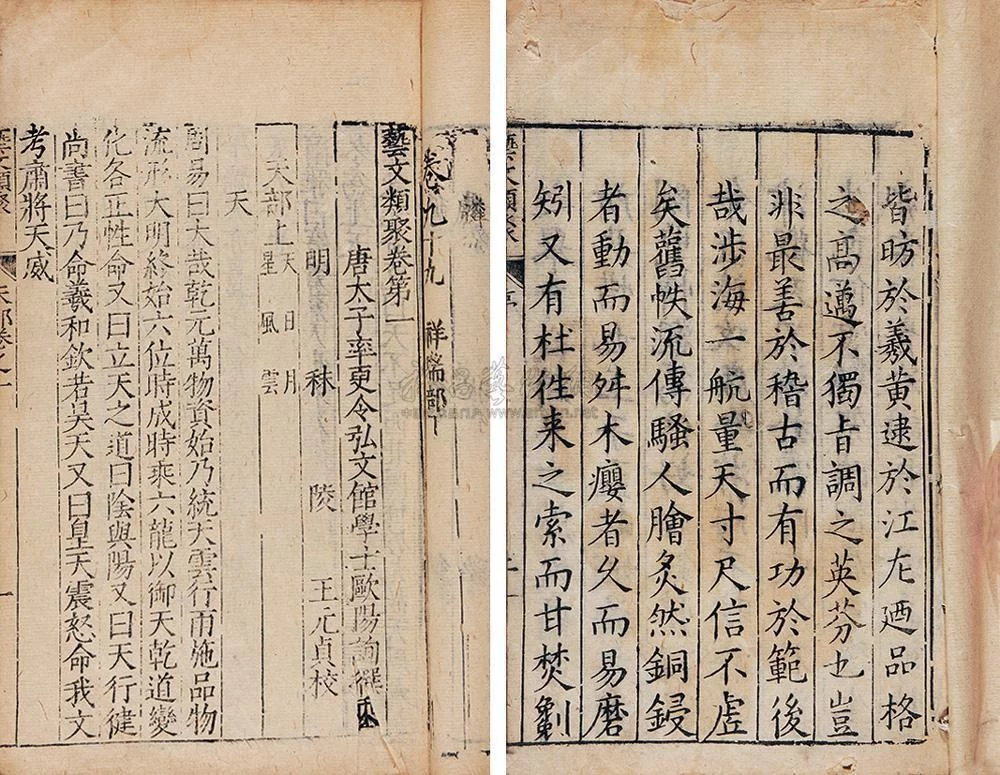 皆昉於羲黃逮於江左廼品格
之高邁不獨音調之英芬也豈
非最善於稽古而有功於範後
哉涉海一航量天寸尺信不虛
矣舊帙流傳騷人膾炙然銅鋟
者動而易舛木癭者久而易磨
矧又有杜徃来之索而甘焚劖
藝文類聚
序
卷九十九 祥瑞部下
藝文類聚卷第一
唐太子率更令弘文館學士歐陽詢撰
明 秣 陵 王元貞校
天部上 天 日 月
星 風 雲
天
周易曰大哉乾元萬物資始乃統天雲行雨施品物
流形大明終始六位時成時乘六龍以御天乾道變
化各正性命又曰立天之道曰陰與陽又曰天行健
尚書曰乃命羲和欽若昊天又曰皇天震怒命我文
考肅將天威
藝文類聚
天部卷之一
一